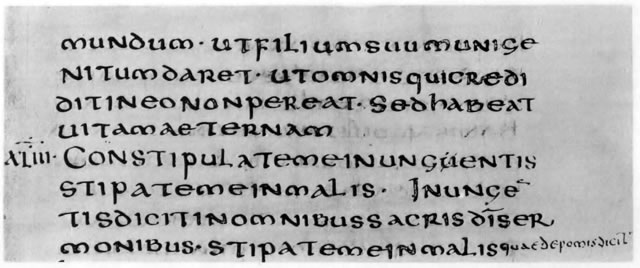 mundum · utfiliumsuumunige
nitumdaret · utomnisquicredi
ditineononpereat · sedhabeat
uitamaeternam
xliii · Constipulatemeinungüentis
stipatemeinmalis · Inungē
tisdicitinomnibussacrisdīser
monibus · stipatemeinmalisquaedepomisdicit